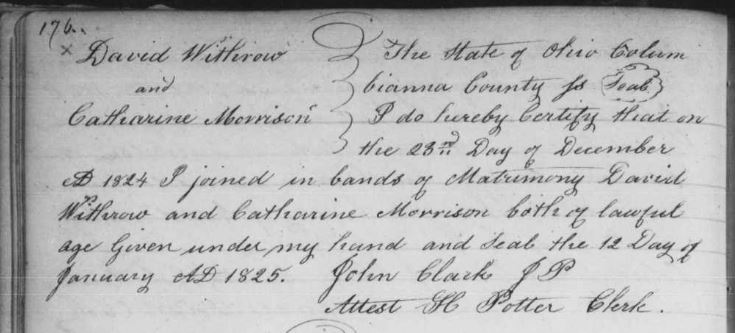 176.
x David Withrow
and
Catharine Morrison
The State of Ohio Colum
bianna County ss Seal
I do hereby Certify that on
the 23rd Day of December
AD 1824 I joined in bands of Matrimony David
Withrow and Catharine Morrison both of lawful
age Given under my hand and Seal the 12 Day of
January AD 1825. John Clark J P
Attest H Potter Clerk.